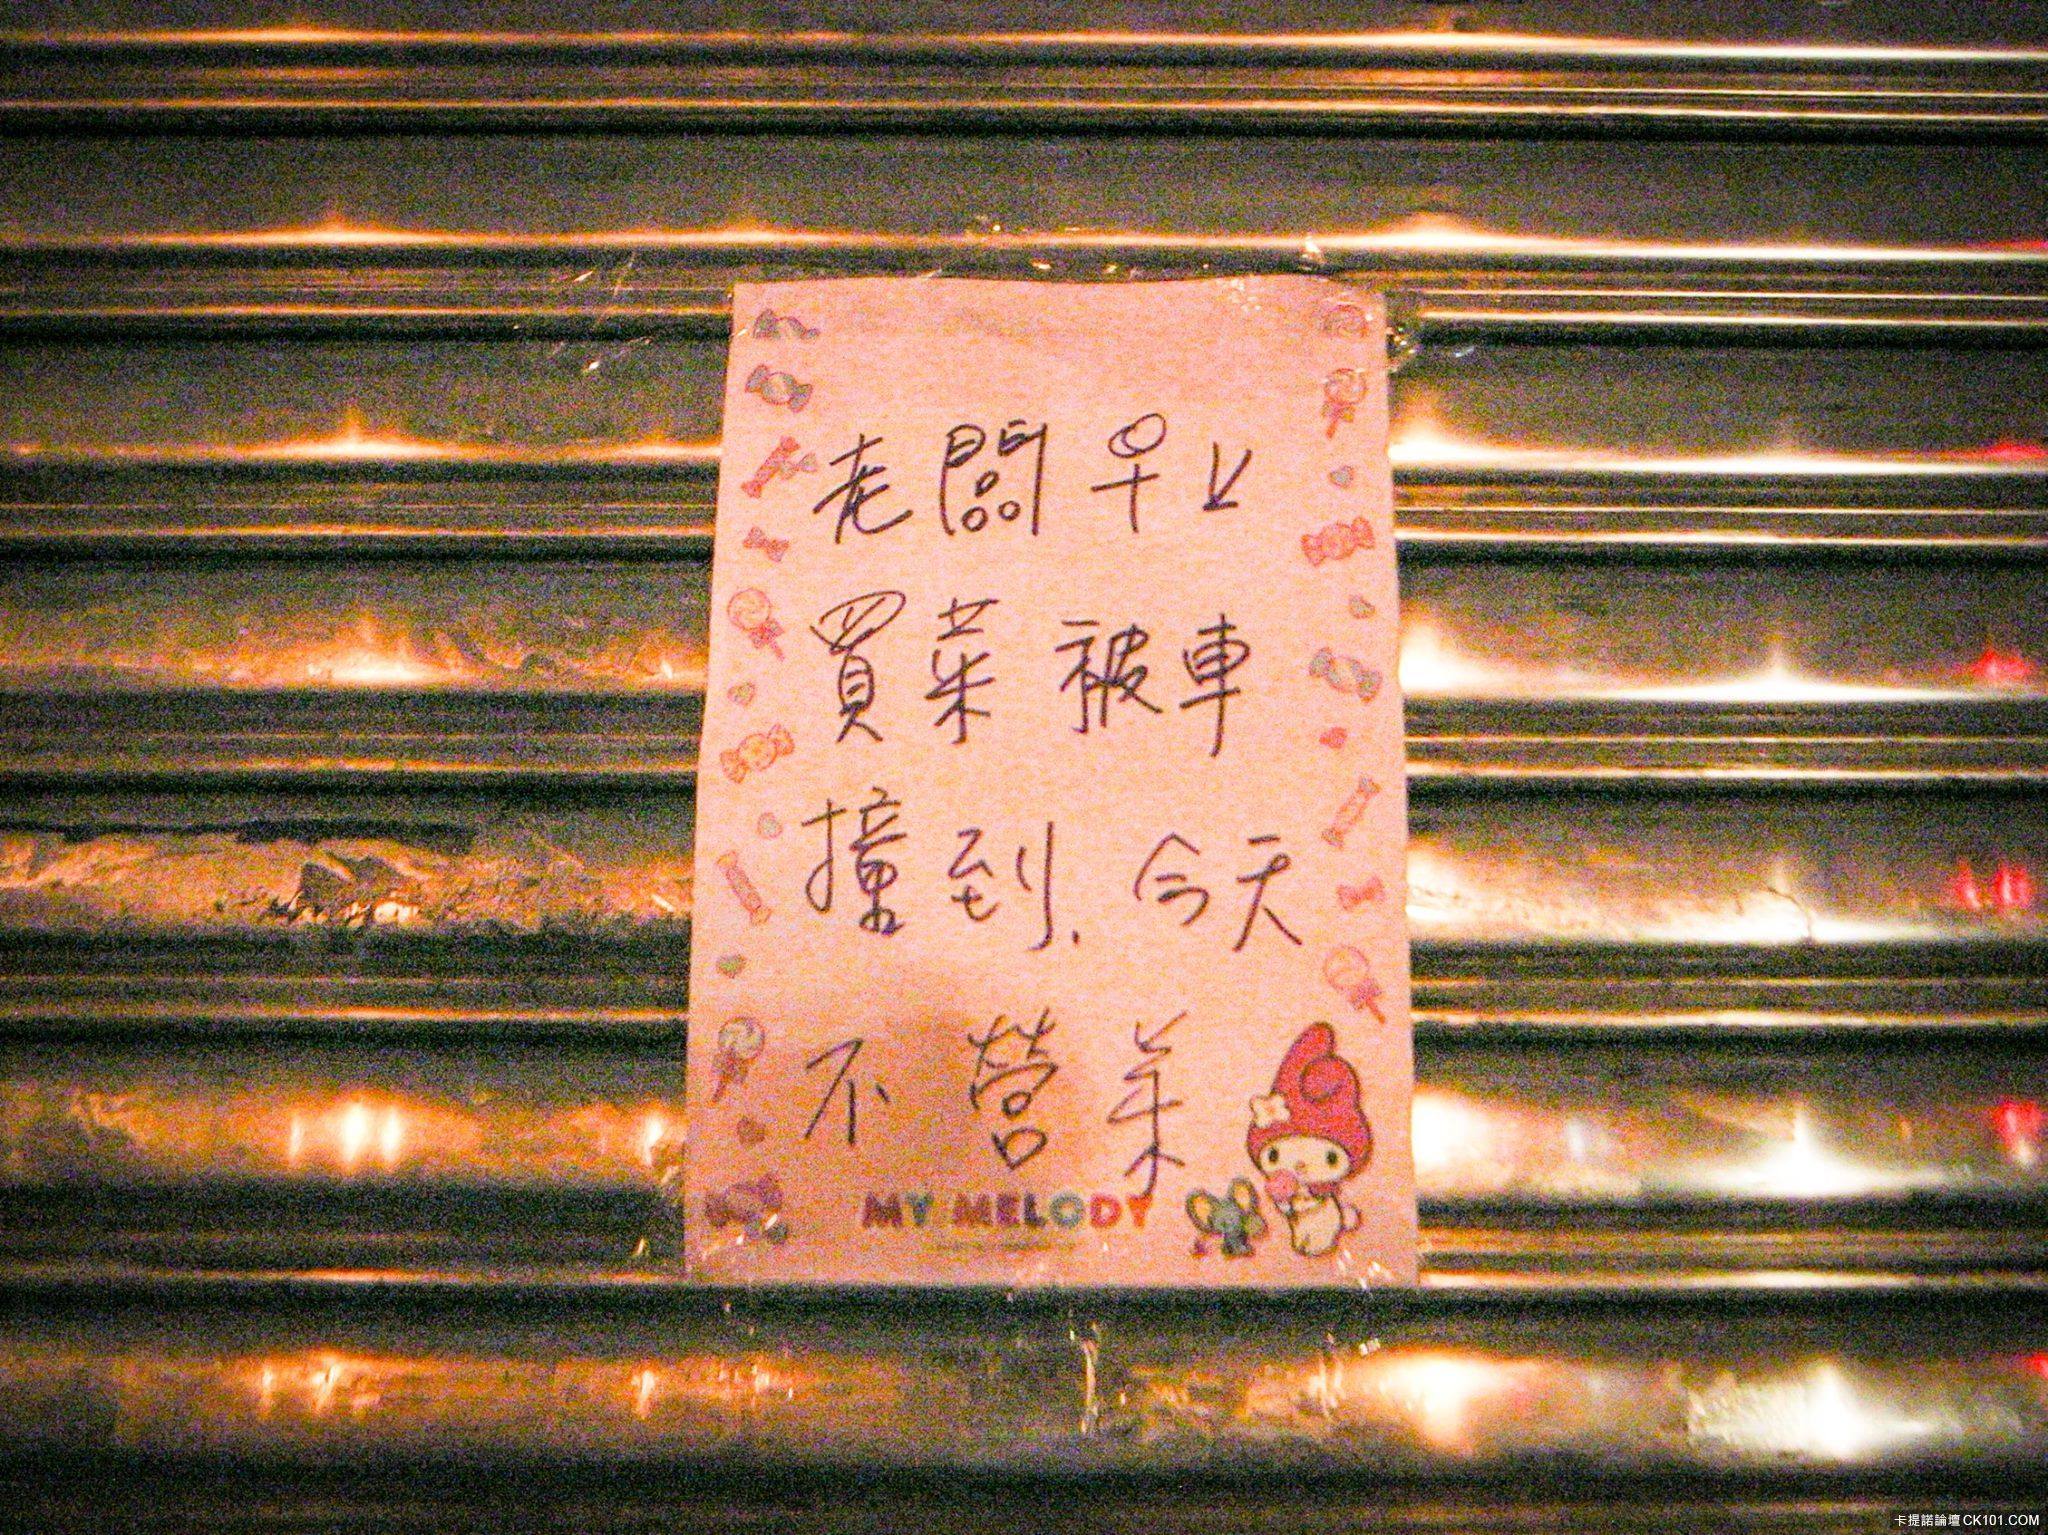 老闆早上
買菜被車
撞到.今天
不營業
MY MELODY
卡提諾論壇 CK101.COM